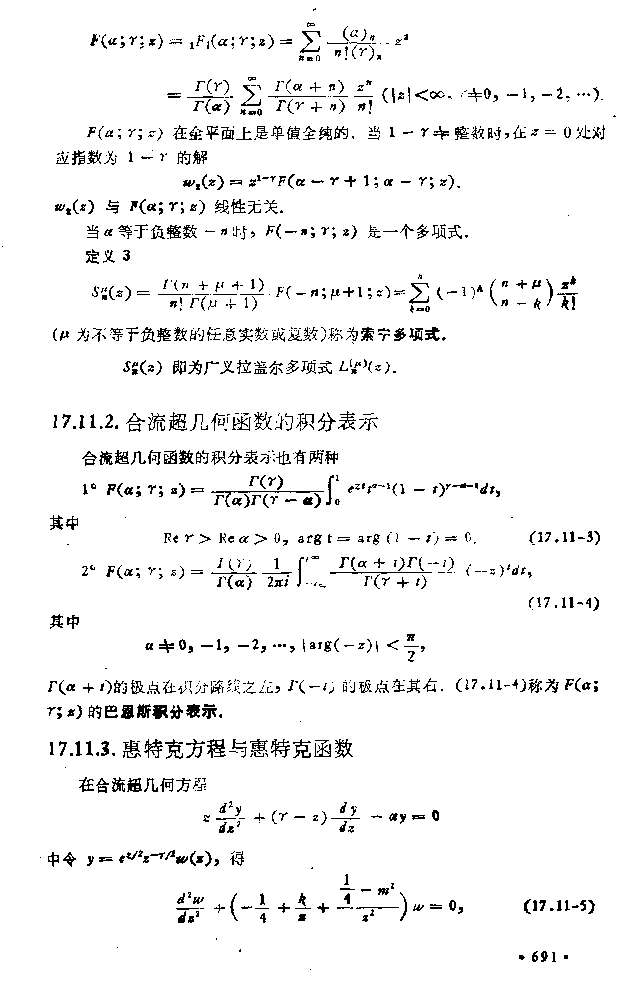 F(α; γ; z) = ₁F₁(α; γ; z) = ∑_{n=0}^{∞} (α)ₙ / n!(γ)ₙ · zⁿ
= Γ(γ)/Γ(α) ∑_{n=0}^{∞} Γ(α + n)/Γ(γ + n) zⁿ/n! (|z|<∞, γ≠0, −1, −2, ⋯).
F(α; γ; z) 在全平面上是单值全纯的. 当 1 − γ ≠ 整数时, 在 z = 0 处对
应指数为 1 − γ 的解
w₂(z) = z^{1−γ}F(α − γ + 1; α − γ; z).
w₂(z) 与 F(α; γ; z) 线性无关.
当 α 等于负整数 − n 时, F(−n; γ; z) 是一个多项式.
定义 3
S_n^μ(z) = Γ(n + μ + 1)/n! Γ(μ + 1) F(−n; μ+1; z) = ∑_{k=0}^{n} (−1)^k (n + μ / n − k) z^k/k!
(μ 为不等于负整数的任意实数或复数)称为索宁多项式.
S_n^μ(z) 即为广义拉盖尔多项式 L_n^{(μ)}(z).
17.11.2. 合流超几何函数的积分表示
合流超几何函数的积分表示也有两种
1° F(α; γ; z) = Γ(γ)/Γ(α)Γ(γ − α) ∫₀¹ e^{zt}t^{α−1}(1 − t)^{γ−α−1}dt,
其中
Re γ > Re α > 0, arg t = arg (1 − t) = 0. (17.11-3)
2° F(α; γ; z) = Γ(γ)/Γ(α) 1/2πi ∫_{−i∞}^{i∞} Γ(α + t)Γ(−t)/Γ(γ + t) (−z)^t dt,
(17.11-4)
其中
α ≠ 0, −1, −2, ⋯, |arg(−z)| < π/2,
Γ(α + t)的极点在积分路线之左, Γ(−t) 的极点在其右. (17.11-4)称为 F(α;
γ; z) 的巴恩斯积分表示.
17.11.3. 惠特克方程与惠特克函数
在合流超几何方程
z d²y/dz² + (γ − z) dy/dz − αy = 0
中令 y = e^{z/2}z^{−γ/2}w(z), 得
d²w/dz² + (−1/4 + k/z + (1/4 − m²)/z²) w = 0, (17.11-5)
• 691 •